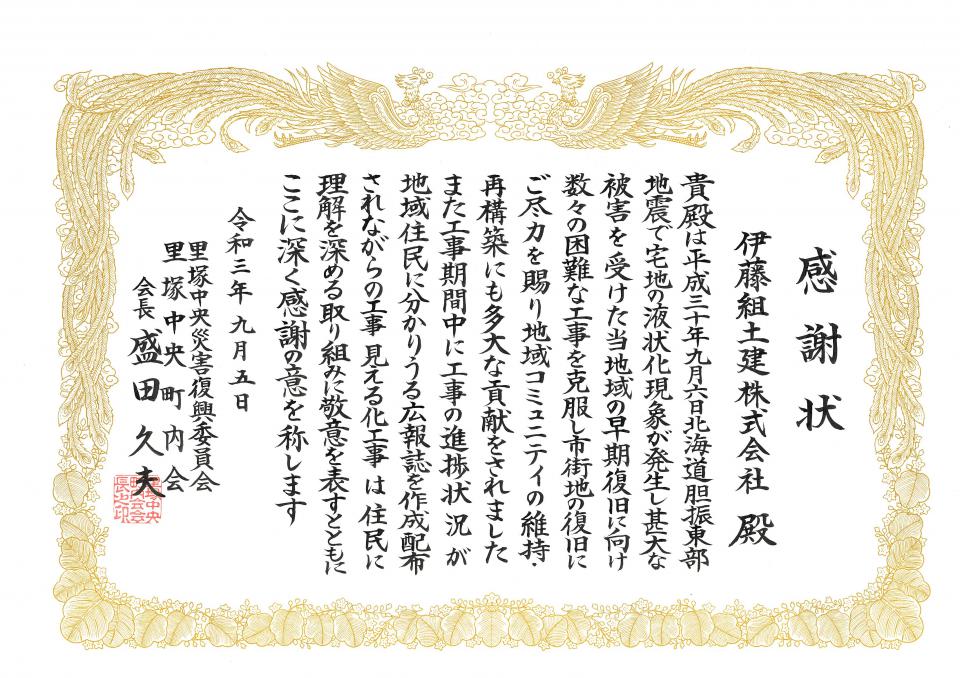 感謝状
伊藤組土建株式会社 殿
貴殿は平成三十年九月六日北海道胆振東部
地震で宅地の液状化現象が発生し甚大な
被害を受けた当地域の早期復旧に向け
数々の困難な工事を克服し市街地の復旧に
ご尽力を賜り地域コミュニティの維持・
再構築にも多大な貢献をされました
また工事期間中に工事の進捗状況が
地域住民に分かりうる広報誌を作成配布
されながらの工事 見える化工事 は住民に
理解を深める取り組みに敬意を表すとともに
ここに深く感謝の意を称します
令和三年九月五日
里塚中央災害復興委員会
里塚中央町内会
会長 盛田久夫
里塚中央
町内会
長之印